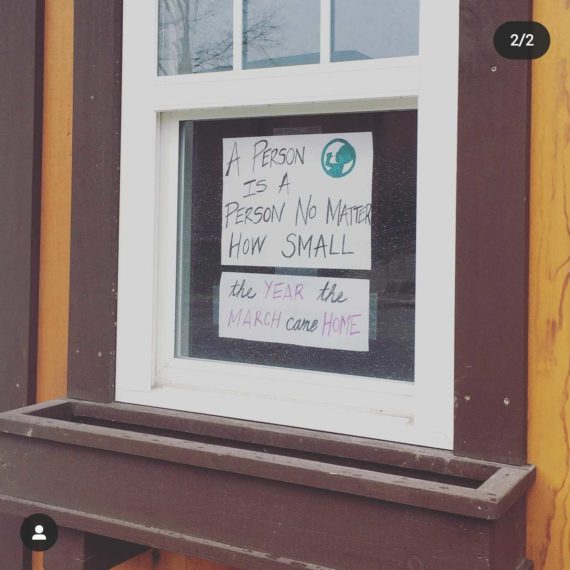 2/2
A PERSON
IS A
PERSON NO MATTER
HOW SMALL
the YEAR the
MARCH came HOME